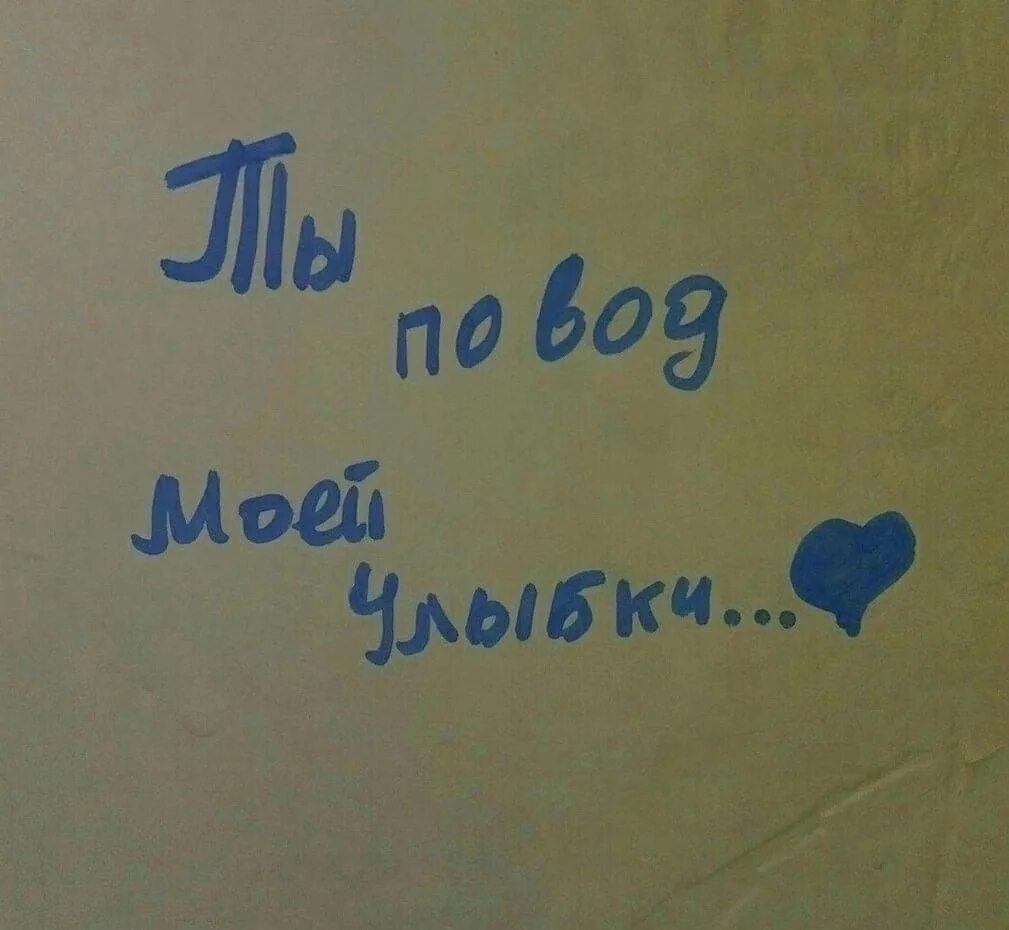 Ты
повод
моей
улыбки...